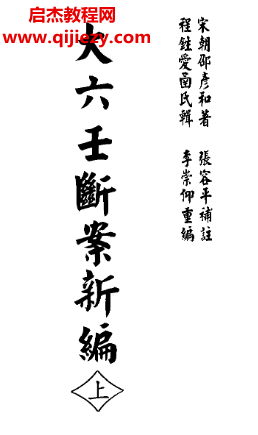 启杰教程网
www.qijiejc.com
宋朝邵彥和著　張容平補註
程鉎愛函氏輯　李崇仰重編
大六壬斷案新編
上